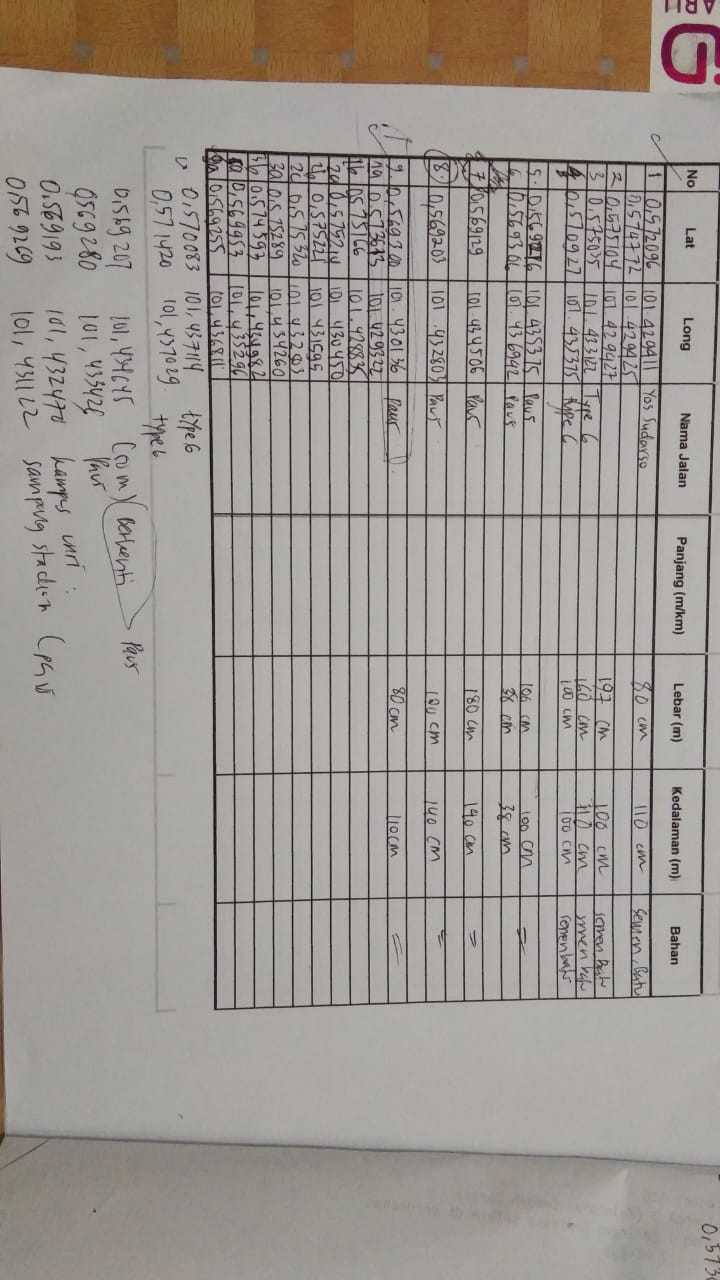 0,573
No Lat Long Nama Jalan Panjang (m/km) Lebar (m) Kedalaman (m) Bahan
1 0,572096 101.429411 Yos Sudarso 80 cm 110 cm semen, Batu
0,574772 101.429425
2 0,575104 101.429427 197 cm 100 cm semen, Batu
3 0,575035 101.433122 Type 6 160 cm 110 cm smen batu
4 0,570927 101.435375 type 6 100 cm 100 cm semen batu
5. 0,569276 101.435375 Paus 106 cm 100 cm =
6 0,569306 101.436942 Paus 38 cm 38 cm
7 0,569129 101.434506 Paus 180 cm 140 cm =
8. 0,569203 101.432803 Paus 100 cm 140 cm =
9. 0,569300 101.430136 Paus 80 cm 110 cm =
1a 0.573613 101.429322
1b 0575166 101.428835
2a 0,575214 101 430450
2b 0,575221 101 431595
2c 0,575320 101,432803
3a 0,575289 101,434260
3b 0.574593 101,434982
0,569953 101,435296
9a 0,569255 101,436811
0,570083 101,437114 type 6
0,571420 101,437029 type 6
0,569207 101,434645 (50 m) (Berhenti Paus
0,569280 101,433426 Paus
0.569193 101,432470 kampus unri :
0,569269 101,431122 samping stadion (paus